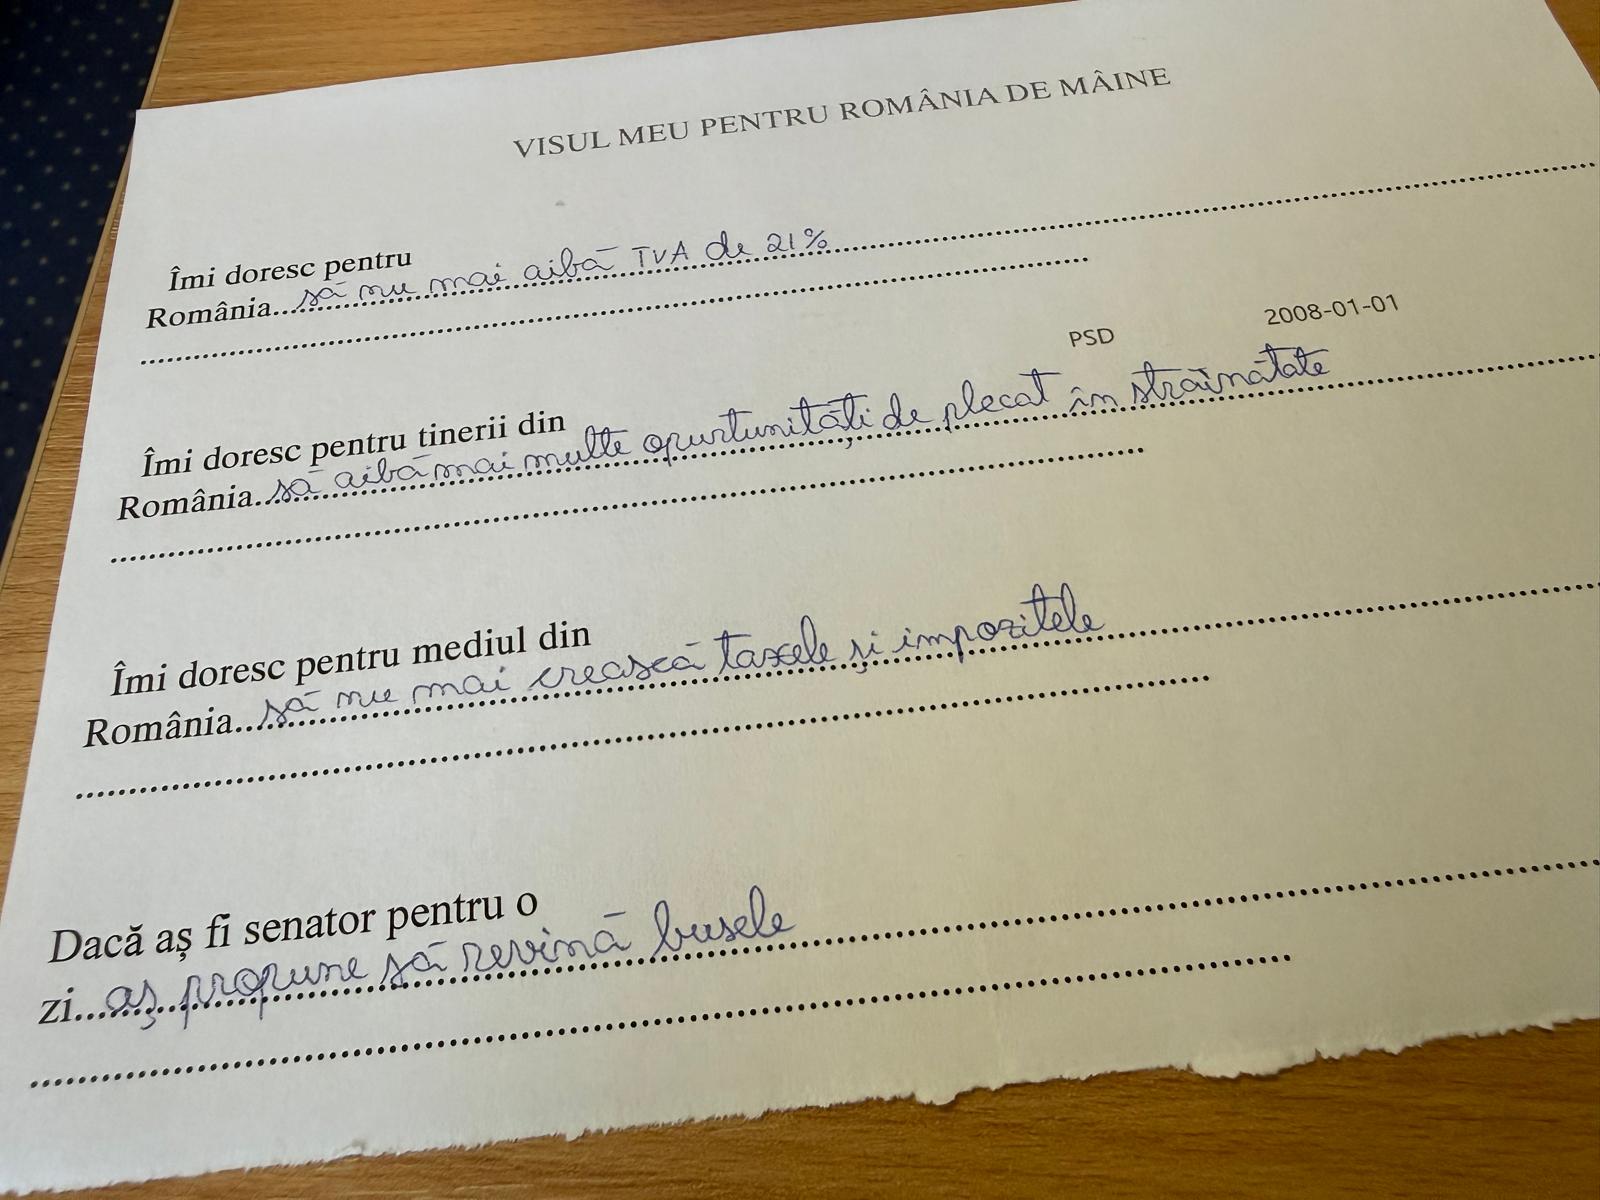 VISUL MEU PENTRU ROMÂNIA DE MÂINE
Îmi doresc pentru
România...să nu mai aibă TVA de 21%
PSD 2008-01-01
Îmi doresc pentru tinerii din
România...să aibă mai multe opurtunități de plecat în străinătate
Îmi doresc pentru mediul din
România...să nu mai crească taxele și impozitele
Dacă aș fi senator pentru o
zi...aș propune să revină busele